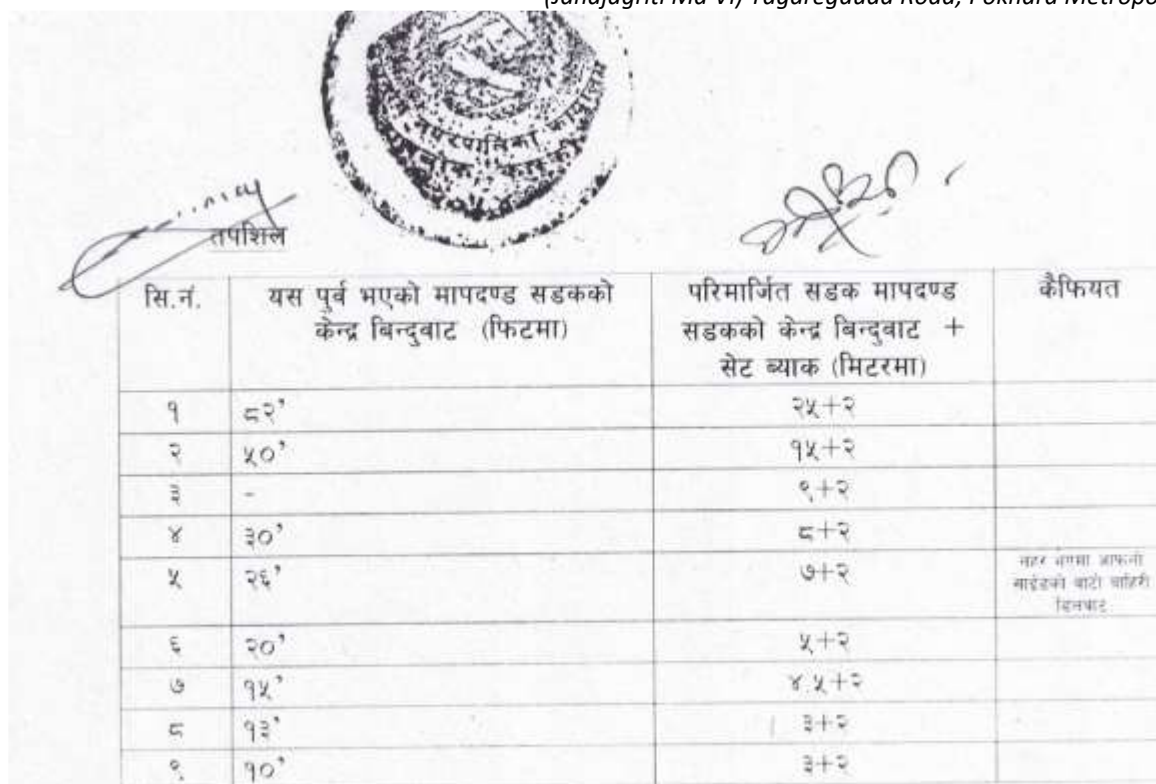 (Janajagriti Ma Vi) Tagaregauda Road, Pokhara Metropo
तपशिल
सि.नं. यस पुर्व भएको मापदण्ड सडकको केन्द्र बिन्दुबाट (फिटमा) परिमार्जित सडक मापदण्ड सडकको केन्द्र बिन्दुबाट + सेट ब्याक (मिटरमा) कैफियत
१ ८२' २५+२
२ ५०' १५+२
३ - ९+२
४ ३०' ८+२
५ २६' ७+२
६ २०' ५+२
७ १५' ४.५+२
८ १३' ३+२
९ १०' ३+२